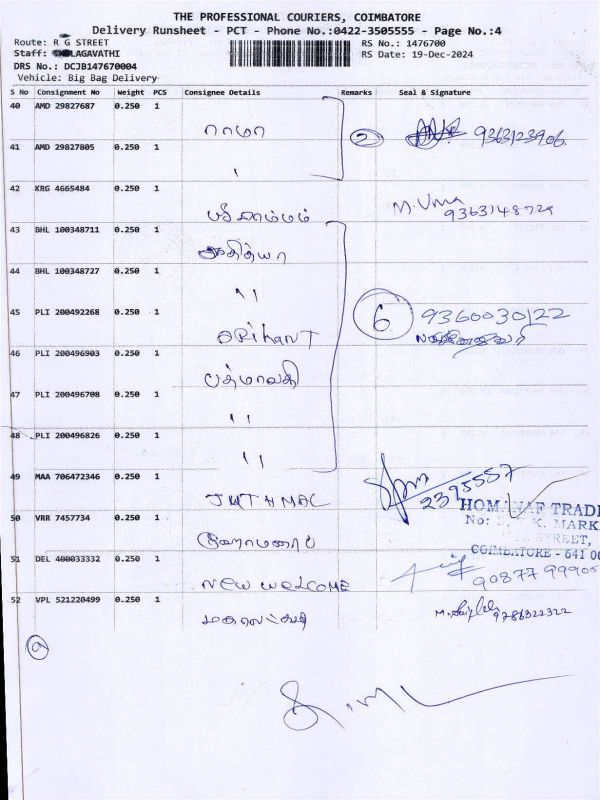 THE PROFESSIONAL COURIERS, COIMBATORE
Delivery Runsheet - PCT - Phone No.:0422-3505555 - Page No.:4
Route: R G STREET
RS No.: 1476700
Staff: LAGAVATHI
RS Date: 19-Dec-2024
DRS No.: DCJB147670004
Vehicle: Big Bag Delivery
S No Consignment No Weight PCS Consignee Details Remarks Seal & Signature
40 AMD 29827687 0.250 1
ராமா
2 9363123906
41 AMD 29827805 0.250 1
"
42 KRG 4665484 0.250 1
M. Uma
9363148729
43 BHL 100348711 0.250 1
44 BHL 100348727 0.250 1
"
45 PLI 200492268 0.250 1
6 9360030122
ORihanT
46 PLI 200496903 0.250 1
பத்மாவதி
47 PLI 200496708 0.250 1
"
48 PLI 200496826 0.250 1
"
49 MAA 706472346 0.250 1
2395557
50 VRR 7457734 0.250 1
HOMANAF TRADE
No: K. MARK
STREET,
COIMBATORE - 641 00
51 DEL 400033332 0.250 1
New WeLCOME
90877 99900
52 VPL 521220499 0.250 1
9786322322
9